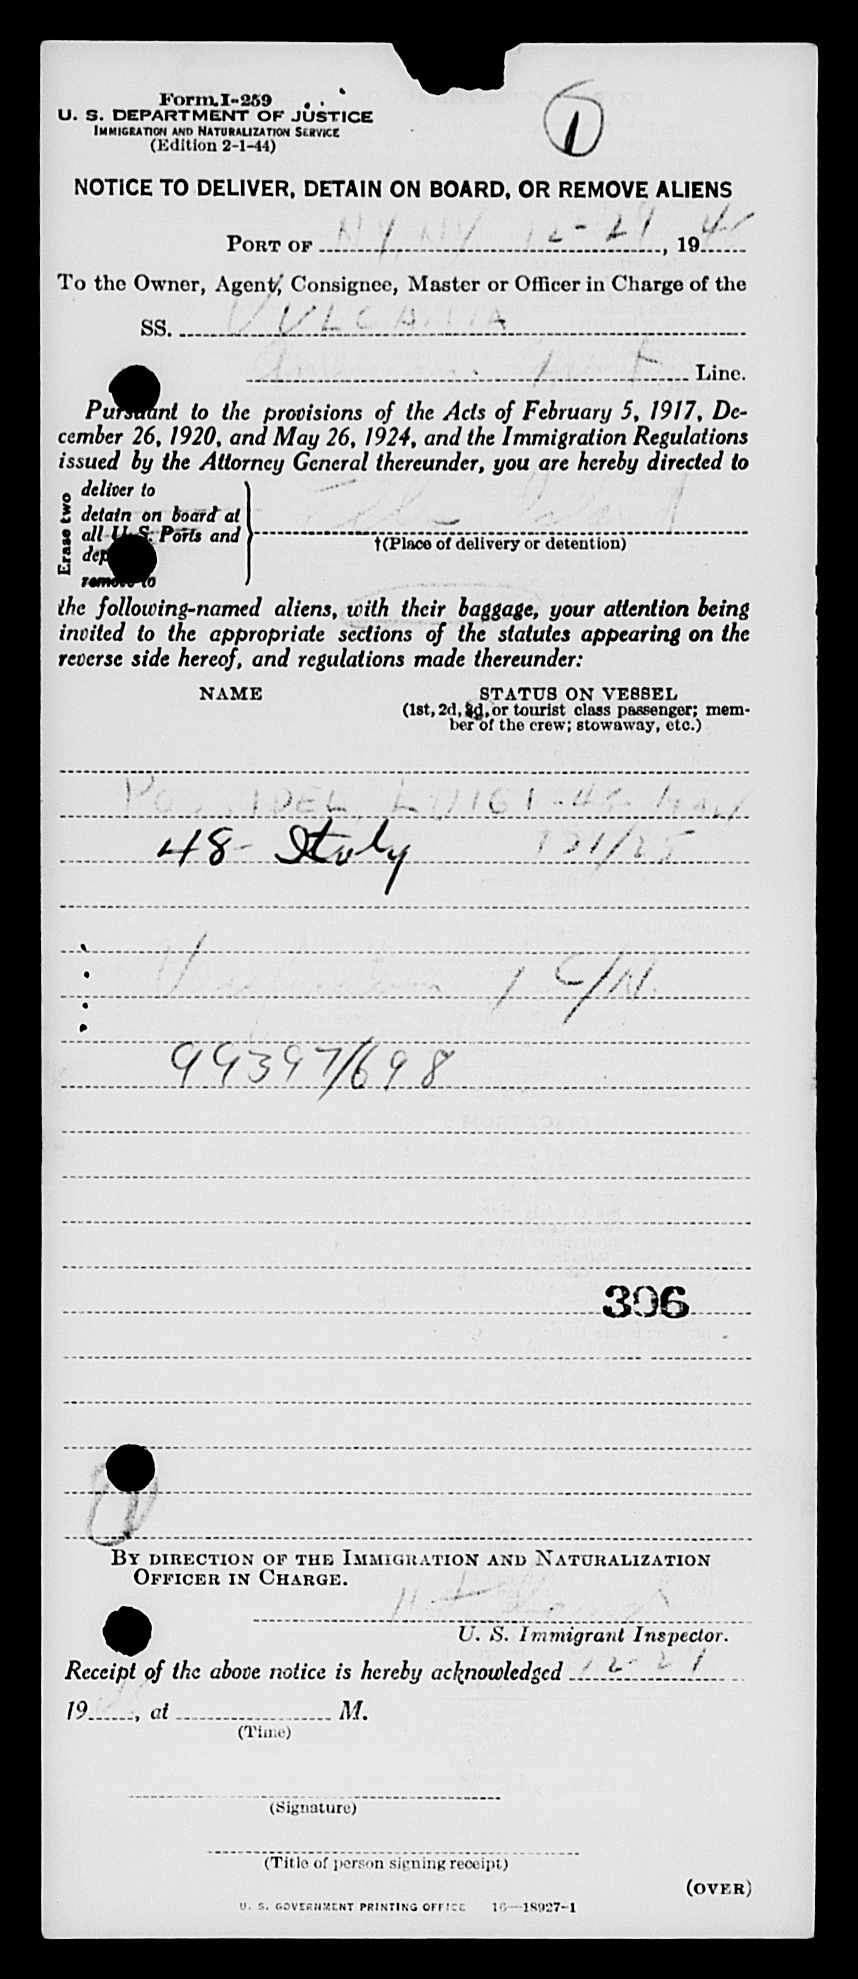 Form I-259
U. S. DEPARTMENT OF JUSTICE
IMMIGRATION AND NATURALIZATION SERVICE
(Edition 2-1-44)
1
NOTICE TO DELIVER, DETAIN ON BOARD, OR REMOVE ALIENS
PORT OF NY, NY 12-29, 19
To the Owner, Agent, Consignee, Master or Officer in Charge of the
SS. VULCANIA
Line.
Pursuant to the provisions of the Acts of February 5, 1917, De-
cember 26, 1920, and May 26, 1924, and the Immigration Regulations
issued by the Attorney General thereunder, you are hereby directed to
Erase two
deliver to
detain on board at
all U. S. Ports and
remove to
Ellis Island
†(Place of delivery or detention)
the following-named aliens, with their baggage, your attention being
invited to the appropriate sections of the statutes appearing on the
reverse side hereof, and regulations made thereunder:
NAME STATUS ON VESSEL
(1st, 2d, 3d, or tourist class passenger; mem-
ber of the crew; stowaway, etc.)
LUIGI - 48 - Italy
48 - Italy 121/25
99397/698
306
BY DIRECTION OF THE IMMIGRATION AND NATURALIZATION
OFFICER IN CHARGE.
U. S. Immigrant Inspector.
Receipt of the above notice is hereby acknowledged 12-29
19, at M.
(Time)
(Signature)
(Title of person signing receipt)
(OVER)
U. S. GOVERNMENT PRINTING OFFICE 16—18927-1